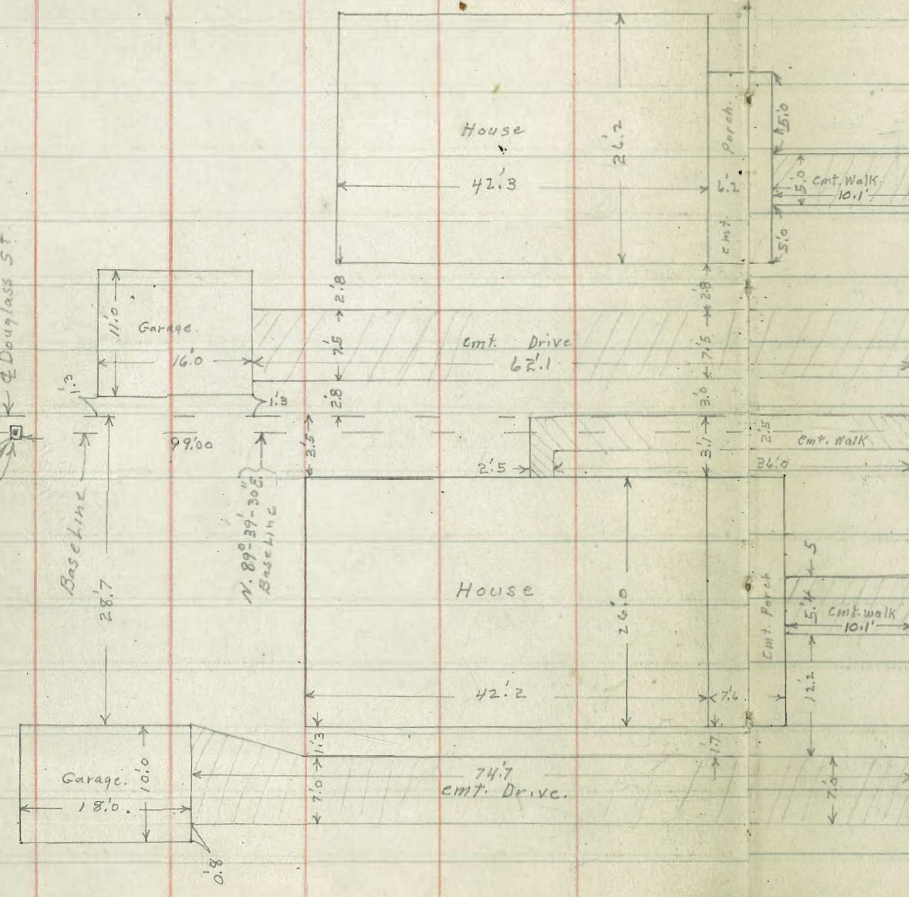 House
26.2
42'.3
Emt. Porch.
6.2'
5.0
5.0
5.0
Cmt. Walk.
10.1'
℄ Douglass St.
11.0
Garage.
16.0
1'.3
1'.3
2'.8
7.5
2.8
Cmt. Drive
62'.1
2.8
7.5
3.0
99.00
3.5
2'.5
3.1
2.5
Cmt. Walk
36.0
Base Line
N. 89°-39'-30"E.
Base Line
28'.7
House
26.0
42'.2
7.6
Cmt. Porch
5
5.4
Cmt. walk
10.1'
12.2
1'.3
1.7
7.0
74'.7
Cmt. Drive.
7.0
Garage.
10.0
18'.0.
0.8